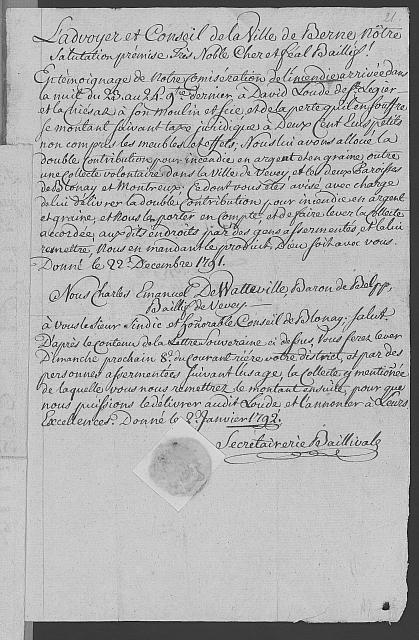 21.
Ladvoyer et Conseil de la Ville de Berne Notre
Salutation prémise Très Noble Cher et feal Baillif!
En témoignage de Notre Comiseration de l'incendie arrivée dans
la nuit du 23. au 24. 9bre dernier à David Loude de
et la Chiesaz à son Moulin et Scie, et de la perte qu'il en souffre
se montant suivant taxe juridique à Deux Cent Ecus petits
non compris les meubles et effets, Nous lui avons alloüé la
double Contribution pour incendie en argent et en graine, outre
une Collecte volontaire dans la Ville de Vevey, et les deux Paroisses
de Blonay et Montreux. Ce dont vous êtes avisé, avec charge
de lui délivrer la double Contribution pour incendie en argent
et graine, et Nous la porter en Compte, et de faire lever la Collecte
accordée aux dits endroits par des gens assermentés et la lui
remettre, Nous en mandant le produit. Dieu soit avec vous.
Donné le 22. Decembre 1791.
Nous Charles Emanuel De Watteville, Baron de Belpp,
Baillif de Vevey
à Vous le Sieur Sindic et honorable Conseil de Blonay: Salut.
D'après le contenu de la Lettre Souveraine ci dessus, Vous ferez lever
Dimanche prochain 8e. du courant riére votre district, et par des
personnes assermentées suivant l'usage, la Collecte y mentionée
de laquelle vous nous remettrez le montant ensuite, pour que
nous puissions le délivrer audit Loude et l'annoter à Leurs
Excellences. Donné le 2e. Janvier 1792.
Secrétairerie Baillivale